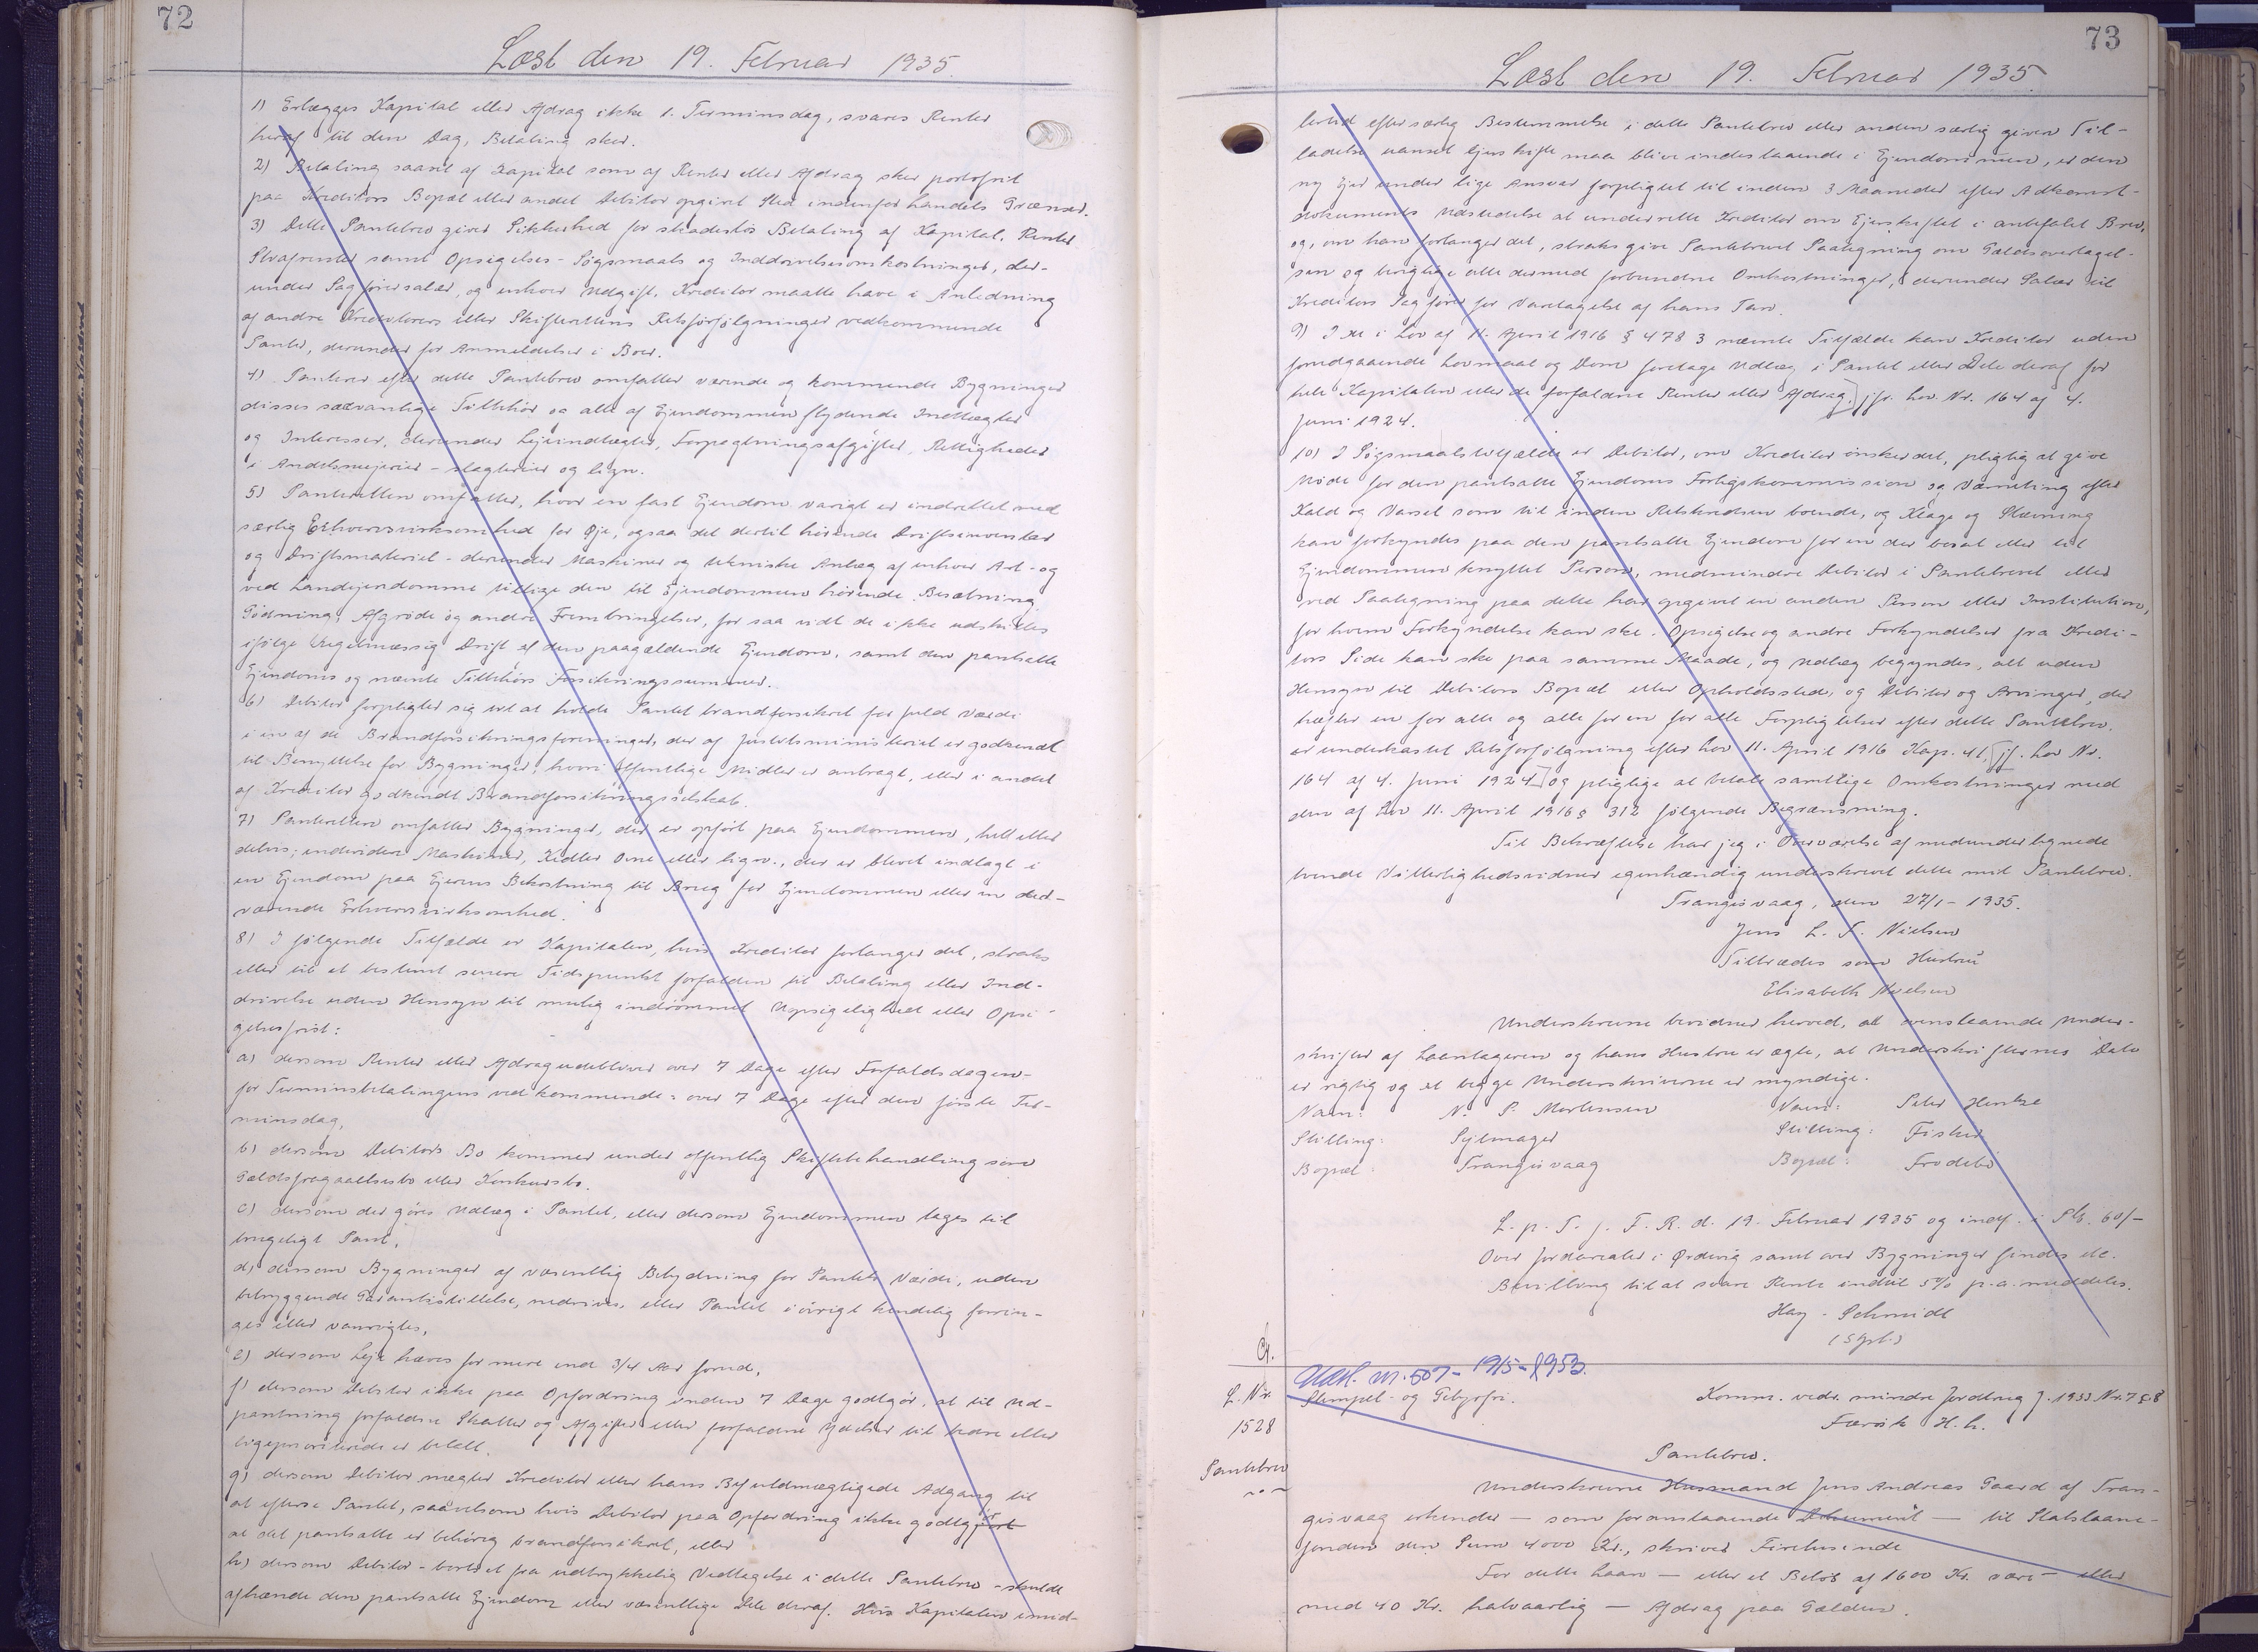 72
Læst den 19. Februar 1935.
1) Erlægges Kapital eller Afdrag ikke 1. Terminsdag, svares Renter
heraf til den Dag, Betaling sker.
2) Betaling saavel af Kapital som af Renter eller Afdrag sker portofrit
paa Kreditors Bopæl eller andet Debitor opgivet Sted indenfor Landets Grænser.
3) Dette Pantebrev giver Sikkerhed for skadesløs Betaling af Kapital, Renter
Strafrenter samt Opsigelses- Søgsmaals og Inddrivelsesomkostninger, der-
under Sagførersalær, og enhver Udgift, Kreditor maatte have i Anledning
af andre Kreditorers eller Skifterettens Retsforfølgninger vedkommende
Pantet, derunder for Anmeldelser i Boer.
4) Panteret efter dette Pantebrev omfatter værende og kommende Bygninger
disses sædvanlige Tilbehør og alle af Ejendommen flydende Indtægter
og Interesser, derunder Lejeindtægter, Forpagtningsafgifter, Rettigheder
i Andelsmejerier - slagterier og lign.
5) Panteretten omfatter, hvor en fast Ejendom varigt er indrettet med
særlig Erhvervsvirksomhed for Øje, ogsaa det dertil hørende Driftsinventar
og Driftsmateriel - derunder Maskiner og tekniske Anlæg af enhver Art - og
ved Landejendomme tillige den til Ejendommen hørende Besætning
Gødning, Afgrøde og andre Frembringelser, for saa vidt de ikke udskilles
ifølge regelmæssig Drift af den paagældende Ejendom, samt den pantsatte
Ejendoms og nævnte Tilbehørs Forsikringssummer.
6) Debitor forpligter sig til at holde Pantet brandforsikret for fuld Værdi
i en af de Brandforsikringsforeninger, der af Justitsministeriet er godkendt
til Benyttelse for Bygninger, hvori offentlige Midler er anbragt, eller i andet
af Kreditor godkendt Brandforsikringsselskab.
7) Panteretten omfatter Bygninger, der er opført paa Ejendommen, helt eller
delvis; endvidere Maskiner, Kedler Ovne eller lign., der er blevet indlagt i
en Ejendom paa Ejerens Bekostning til Brug for Ejendommen eller en der-
værende Erhvervsvirksomhed.
8) I følgende Tilfælde er Kapitalen, hvis Kreditor forlanger det, straks
eller til et bestemt senere Tidspunkt forfalden til Betaling eller Ind-
drivelse uden Hensyn til mulig indrømmet Uopsigelighed eller Opsi-
gelsesfrist:
a) dersom Renter eller Afdrag udebliver over 7 Dage efter Forfaldsdagen -
for Terminsbetalingens vedkommende: over 7 Dage efter den første Ter-
minsdag,
b) dersom Debitors Bo kommer under offentlig Skiftebehandling som
Gældsfragaaelsesbo eller Konkursbo.
c) dersom der gøres Udlæg i Pantet, eller dersom Ejendommen tages til
brugeligt Pant,
d) dersom Bygninger af væsentlig Betydning for Pantets Værdi, uden
betryggende Garantistillelse, nedrives, eller Pantet iøvrigt kendelig forrin-
ges eller vanrøgtes,
e) dersom Leje hæves for mere end 3/4 Aar forud,
f) dersom Debitor ikke paa Opfordring inden 7 Dage godtgør, at til Ud-
pantning forfaldne Skatter og Afgifter eller forfaldne Ydelser til foran eller
ligeprioriterede er betalt.
g) dersom Debitor nægter Kreditor eller hans Befuldmægtigede Adgang til
at efterse Pantet, saavelsom hvis Debitor paa Opfordring ikke godtgør
at det pantsatte er behørig brandforsikret, eller
h) dersom Debitor - bortset fra udtrykkelig Vedtagelse i dette Pantebrev - skulde
afhænde den pantsatte Ejendom eller væsentlige Dele deraf. Hvis Kapitalen imid-
73
Læst den 19. Februar 1935.
lertid efter særlig Bestemmelse i dette Pantebrev eller anden særlig given Til-
ladelse uanset Ejerskifte maa blive indestaaende i Ejendommen, er den
ny Ejer under lige Ansvar forpligtet til inden 3 Maaneder efter Adkomst-
dokumentets Udstedelse at underrette Kreditor om Ejerskiftet i anbefalet Brev,
og, om han forlanger det, straks give Pantebrevet Paategning om Gældsovertagel-
sen og berigtige alle dermed forbundne Omkostninger, derunder Salær til
Kreditors Sagfører for Varetagelse af hans Tarv.
9) I de i Lov af 11. April 1916 § 478 3 nævnte Tilfælde kan Kreditor uden
forudgaaende Lovmaal og Dom foretage Udlæg i Pantet eller Dele deraf for
hele Kapitalen eller de forfaldne Renter eller Afdrag, jfr. Lov Nr. 164 af 4.
Juni 1924.
10) I Søgsmaalstilfælde er Debitor, om Kreditor ønsker det, pligtig at give
Møde for den pantsatte Ejendoms Forligskommission og Værneting efter
Kald og Varsel som til inden Retskredsen boende, og Klage og Stævning
kan forkyndes paa den pantsatte Ejendom for en der bosat eller til
Ejendommen knyttet Person, medmindre Debitor i Pantebrevet eller
ved Paategning paa dette har opgivet en anden Person eller Institution,
for hvem Forkyndelse kan ske. Opsigelse og andre Forkyndelser fra Kredi-
tors Side kan ske paa samme Maade, og Udlæg begyndes, alt uden
Hensyn til Debitors Bopæl eller Opholdssted, og Debitor og Arvinger, der
hæfter en for alle og alle for en for alle Forpligtelser efter dette Pantebrev.
er underkastet Retsforfølgning efter Lov 11. April 1916 Kap. 41, jf. Lov Nr.
164 af 4. Juni 1924 og pligtige at betale samtlige Omkostninger med
den af Lov 11. April 1916 § 312 følgende Begrænsning.
Til Bekræftelse har jeg i Overværelse af medundertegnede
tvende Vitterlighedsvidner egenhændig underskrevet dette mit Pantebrev.
Trangisvaag, den 27/1 - 1935.
Jens L. F. Nielsen
Tiltrædes som Hustru
Elisabeth Nielsen
Underskrevne bevidner herved, at ovenstaaende Under-
skrifter af Laantageren og hans Hustru er ægte, at Underskrifternes Dato
er rigtig og at begge Underskriverne er myndige.
Navn: N. P. Mortensen Navn: Peter Hentze
Stilling: Sejlmager Stilling: Fisker
Bopæl: Trangisvaag Bopæl: Frodebø
L. p. T. f. F. R. d. 19. Februar 1935 og indf. i Plb. 60/-
Over Jordarealer i Ørdevig samt over Bygninger findes etc.
Bevilling til at svare Rente indtil 5% p.a. meddeles.
Hay - Schmidt
Cf.
Udsl. Nr. 507 - 19/5 - 1953.
L. Nr. Stempel- og Gebyrfri. Komm. vedr. mindre Jordbrug J. 1933 Nr. 7 58
1528 Færøske H. h.
Pantebrev Pantebrev.
Underskrevne Husmand Jens Andreas Gaard af Tran-
gisvaag erkender — som foranstaaende Dokument — til Statslaane-
fonden den Sum 4000 Kr., skriver Firetusinde
For dette Laan — eller et Beløb af 1600 Kr. svares — eller
med 40 Kr. halvaarlig — Afdrag paa Gælden.